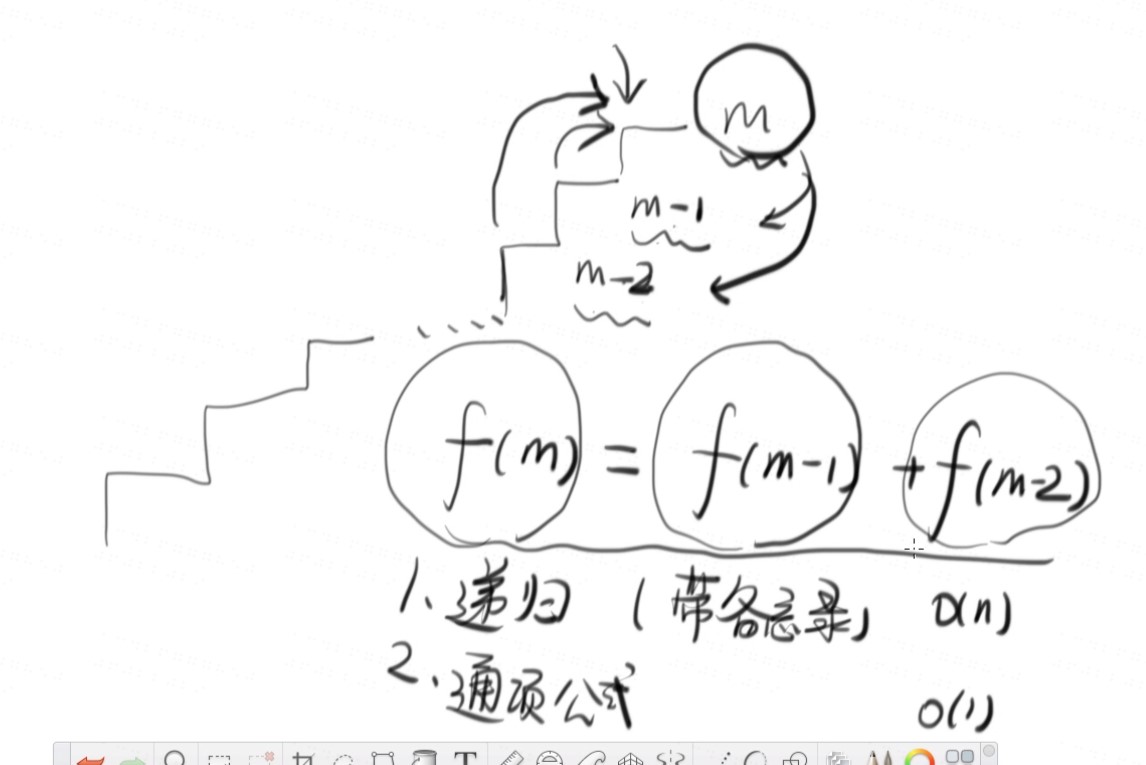 m
m-1
m-2
f(m) = f(m-1) + f(m-2)
1、递归 (带备忘录) O(n)
2、通项公式 O(1)
T